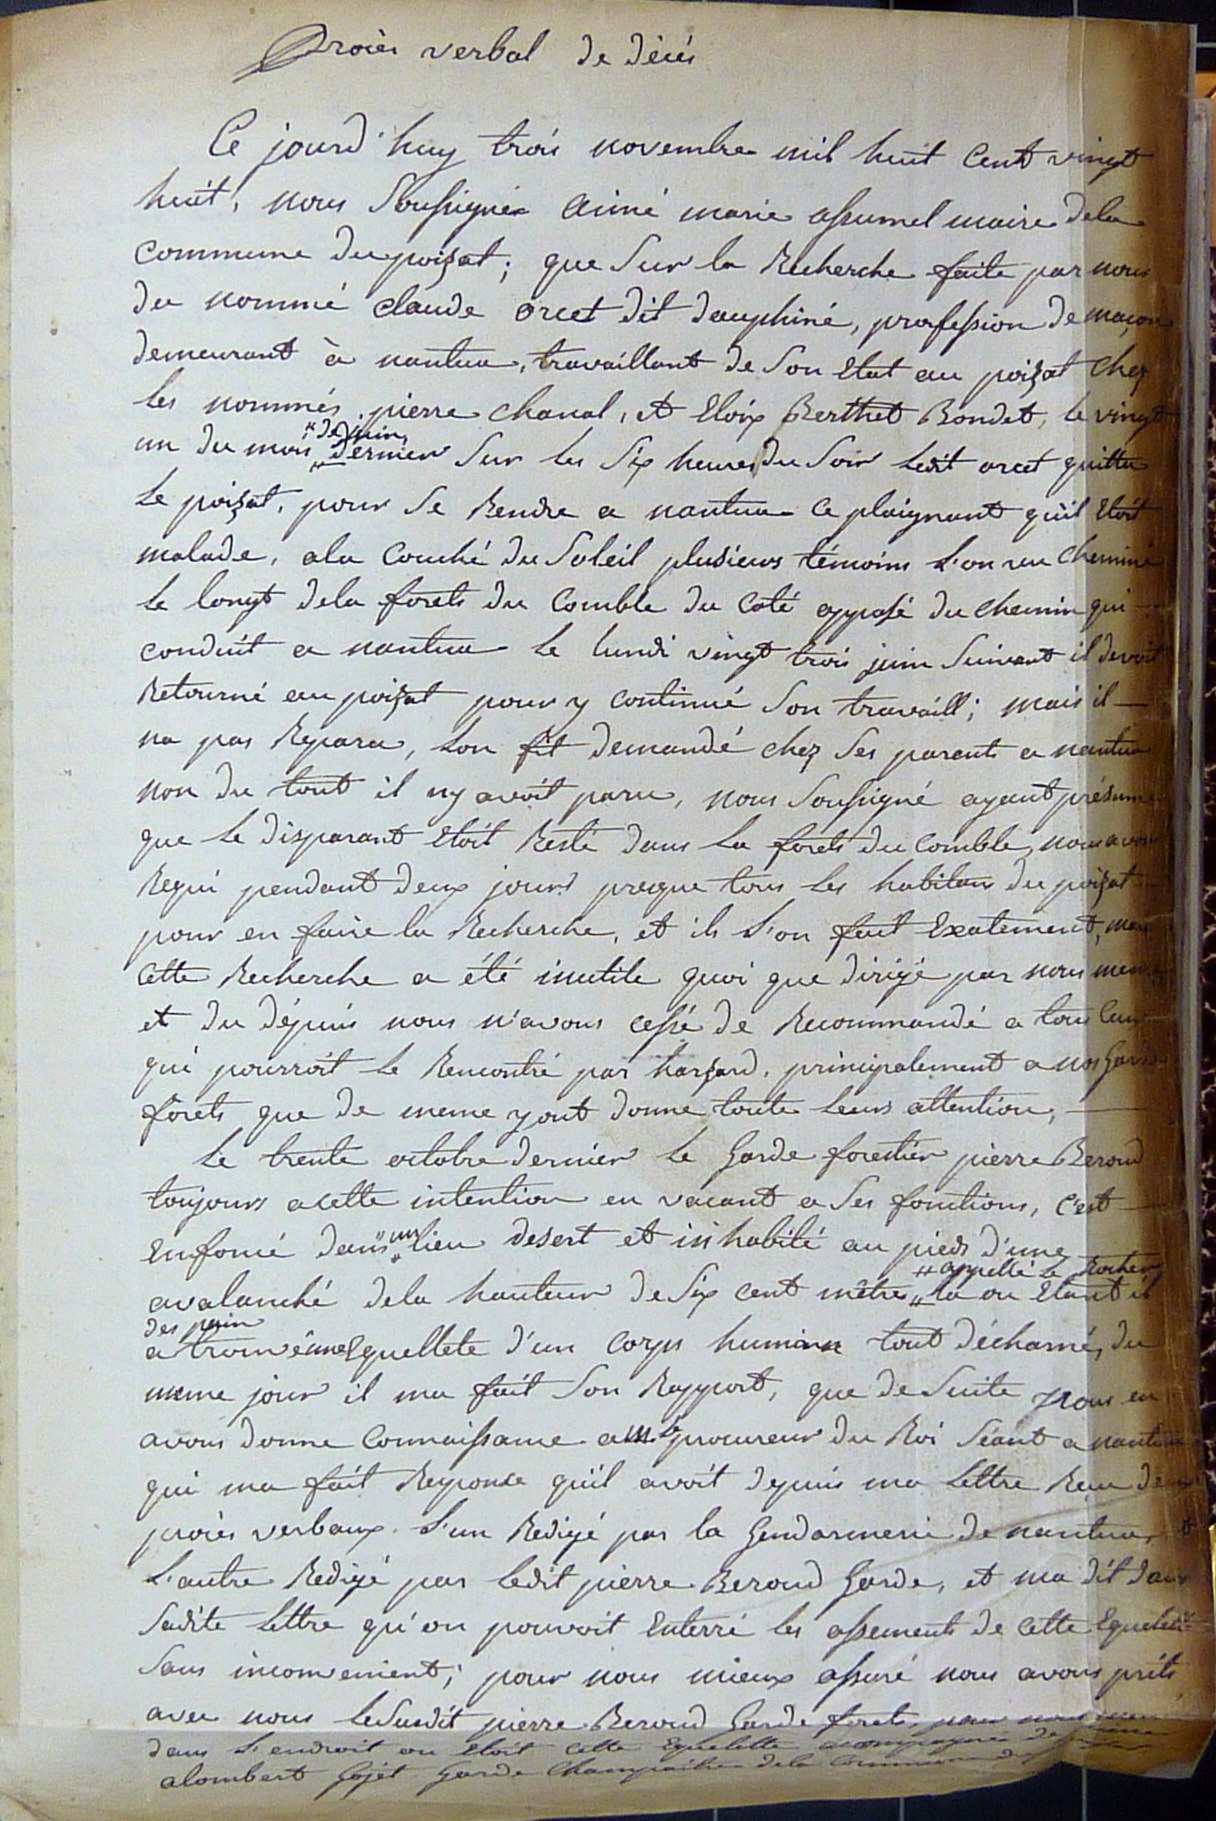 Procès verbal de décès
Ce jourd'huy trois novembre mil huit Cent vingt
huit, nous Soussigné Aimé marie assumel maire dela
Commune du poizat; que Sur la Recherche faite par nous
du nommé claude orcet dit dauphiné, profession de maçon
demeurant à nantua, travaillant de Son Etat au poizat chez
les nommés pierre chanal, et Eloix Berthet Bondet, le vingt
" de juin
un du mois " dernier Sur les Six heures du Soir ledit orcet quitta
Le poizat, pour Se Rendre a nantua Ce plaignant qu'il Etoit
malade, ala Couché du Soleil plusieurs témoins L'on vu Cheminé
Le longt dela forets du Comble du Coté opposé du chemin qui
conduit a nantua Le lundi vingt trois juin Suivant il devoit
Retourné au poizat pour y continué Son travaill; mais il
na pas Reparu, Lon fit demandé chez Ses parents a nantua
non du tout il ny avoit paru, nous Soussigné ayant présumé
que Le disparant Etoit Resté dans La forets du Comble, nous avons
Requi pendant deux jours presque tous Les habitans du poizat
pour en faire la Recherche, et ils L'on fait Exatement, mais
Cette Recherche a été inutile quoi que dirigé par nous meme
et du dépuis nous n'avons cessé de Recommandé a tous Ceux
qui pourroit Le Rencontré par hazard, principalement a nos Gardes
forets que de meme y ont donne toute Leurs attention,
Le trente octobre dernier Le Garde forestier pierre Beroud
toujours acette intention en vacant a Ses fonctions, C'est
Enfoncé dans " un lieu desert et inhabité au pieds d'une
" appellé Le Rocher
avalanché dela hauteur de Six cent mêtre " la ou Etant il
des
a trouvé une Squellete d'un Corps humain tout décharné, du
meme jour il ma fait Son Rapport, que de Suite nous en
avons donne Connaissance a m. le procureur du Roi Séant a nantua
qui ma fait Reponse qu'il avoit depuis ma Lettre Reçu deux
procès verbaux. L'un Redigé par la Gendarmerie de nantua, et
L'autre Redigé par Ledit pierre Beroud Garde, et ma dit dans
Sadite Lettre qu'on pouvoit Enterré les assements de Cette
Sans inconvenient; pour nous mieux assuré nous avons prits
avec nous LeSusdit pierre Beroud Garde forets pour nous
dans L'endroit ou Etoit Cette Equelette accompagné de
alombert Gojet Garde Champaitre dela Commune du